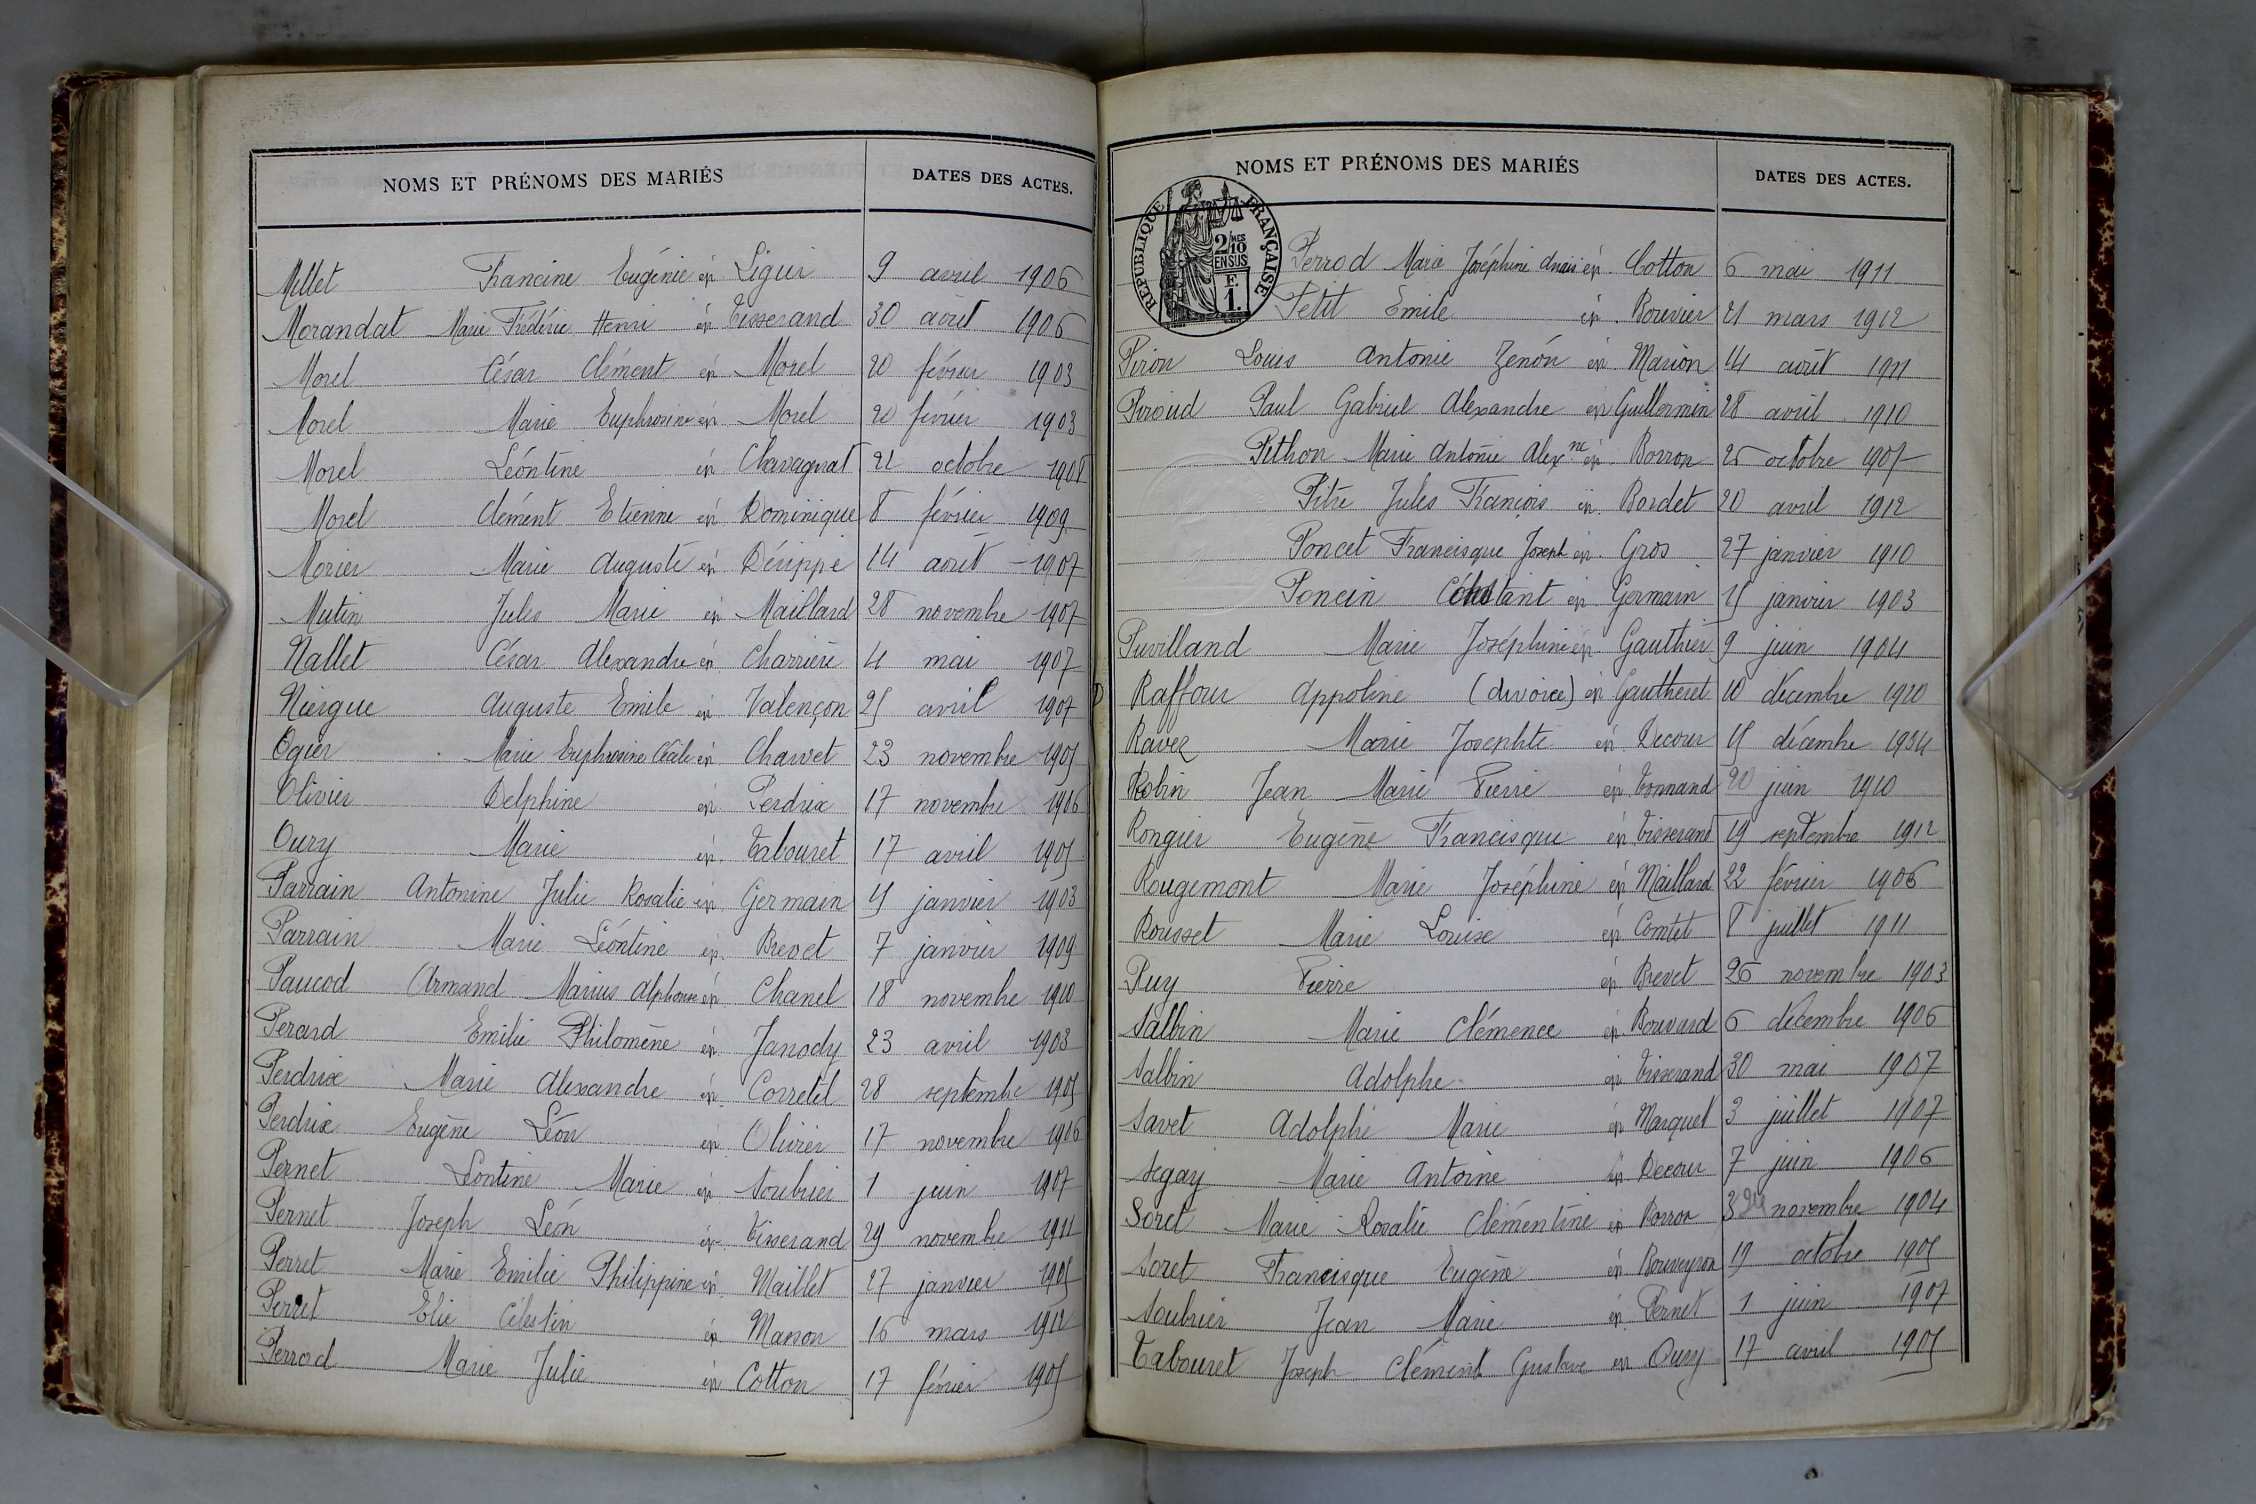 NOMS ET PRÉNOMS DES MARIÉS DATES DES ACTES.
Millet Francine Eugénie ép Ligur 9 avril 1906
Morandat Marie Frédéric Henri ép Tisserand 30 août 1906
Morel César Clément ép Morel 20 février 1903
Morel Marie Euphrosine ép Morel 20 février 1903
Morel Léontine ép Chavagnat 21 octobre 1908
Morel Clément Etienne ép Dominique 8 février 1909
Morier Marie Auguste ép Désippe 14 août 1907
Mutin Jules Marie ép Maillard 28 novembre 1907
Nallet César Alexandre ép Charrière 4 mai 1907
Niergue Auguste Emile ép Valençon 25 avril 1907
Ogier Marie Euphrosine Cécile ép Charvet 23 novembre 1905
Olivier Delphine ép Perdrix 17 novembre 1906
Oury Marie ép Tabouret 17 avril 1905
Parrain Antonine Julie Rosalie ép Germain 15 janvier 1903
Parrain Marie Léontine ép Brevet 7 janvier 1909
Paucod Armand Marius Alphonse ép Chanel 18 novembre 1910
Perard Emilie Philomène ép Janody 23 avril 1903
Perdrix Marie Alexandre ép Corretel 28 septembre 1905
Perdrix Eugène Léon ép Olivier 17 novembre 1906
Pernet Léontine Marie ép Soubrier 1 juin 1907
Pernet Joseph Léon ép Tisserand 29 novembre 1911
Perret Marie Emilie Philippine ép Maillet 27 janvier 1905
Perret Elie Célestin ép Manon 16 mars 1912
Perrod Marie Julie ép Cotton 17 février 1905
NOMS ET PRÉNOMS DES MARIÉS DATES DES ACTES.
RÉPUBLIQUE FRANÇAISE
2/10 MES
EN SUS
F.
1.
Perrod Marie Joséphine Anaïs ép Cotton 6 mai 1911
Petit Emile ép Bouvier 21 mars 1912
Piron Louis Antonie Zenón ép Marion 14 août 1911
Piroud Paul Gabriel Alexandre ép Guillermin 28 avril 1910
Pithon Marie Antonie Alex.ne ép Borron 25 octobre 1905
Pitre Jules François ép Bordet 20 avril 1912
Poncet Francisque Joseph ép Gros 27 janvier 1910
Poncin Constant ép Germain 15 janvier 1903
Puvilland Marie Joséphine ép Gauthier 9 juin 1904
D Raffour Appoline (divorce) ép Gautheret 10 décembre 1920
Ravez Marie Josephte ép Decour 15 décembre 1934
Robin Jean Marie Pierre ép Tonnand 20 juin 1910
Rongier Eugène Francisque ép Tisserand 19 septembre 1912
Rougemont Marie Joséphine ép Maillard 22 février 1906
Rousset Marie Louise ép Comtet 8 juillet 1911
Puy Pierre ép Brevet 26 novembre 1903
Salbin Marie Clémence ép Bouvard 6 décembre 1906
Salbin Adolphe ép Tisserand 30 mai 1907
Savet Adolphe Marie ép Marquet 3 juillet 1907
Segay Marie Antoine ép Decour 7 juin 1906
Soret Marie Rosalie Clémentine ép Borron 24 novembre 1904
Soret Francisque Eugène ép Bouveyron 19 octobre 1905
Soubrier Jean Marie ép Pernet 1 juin 1907
Tabouret Joseph Clément Gustave ép Oury 17 avril 1905